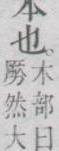 本也。
木部曰
然大